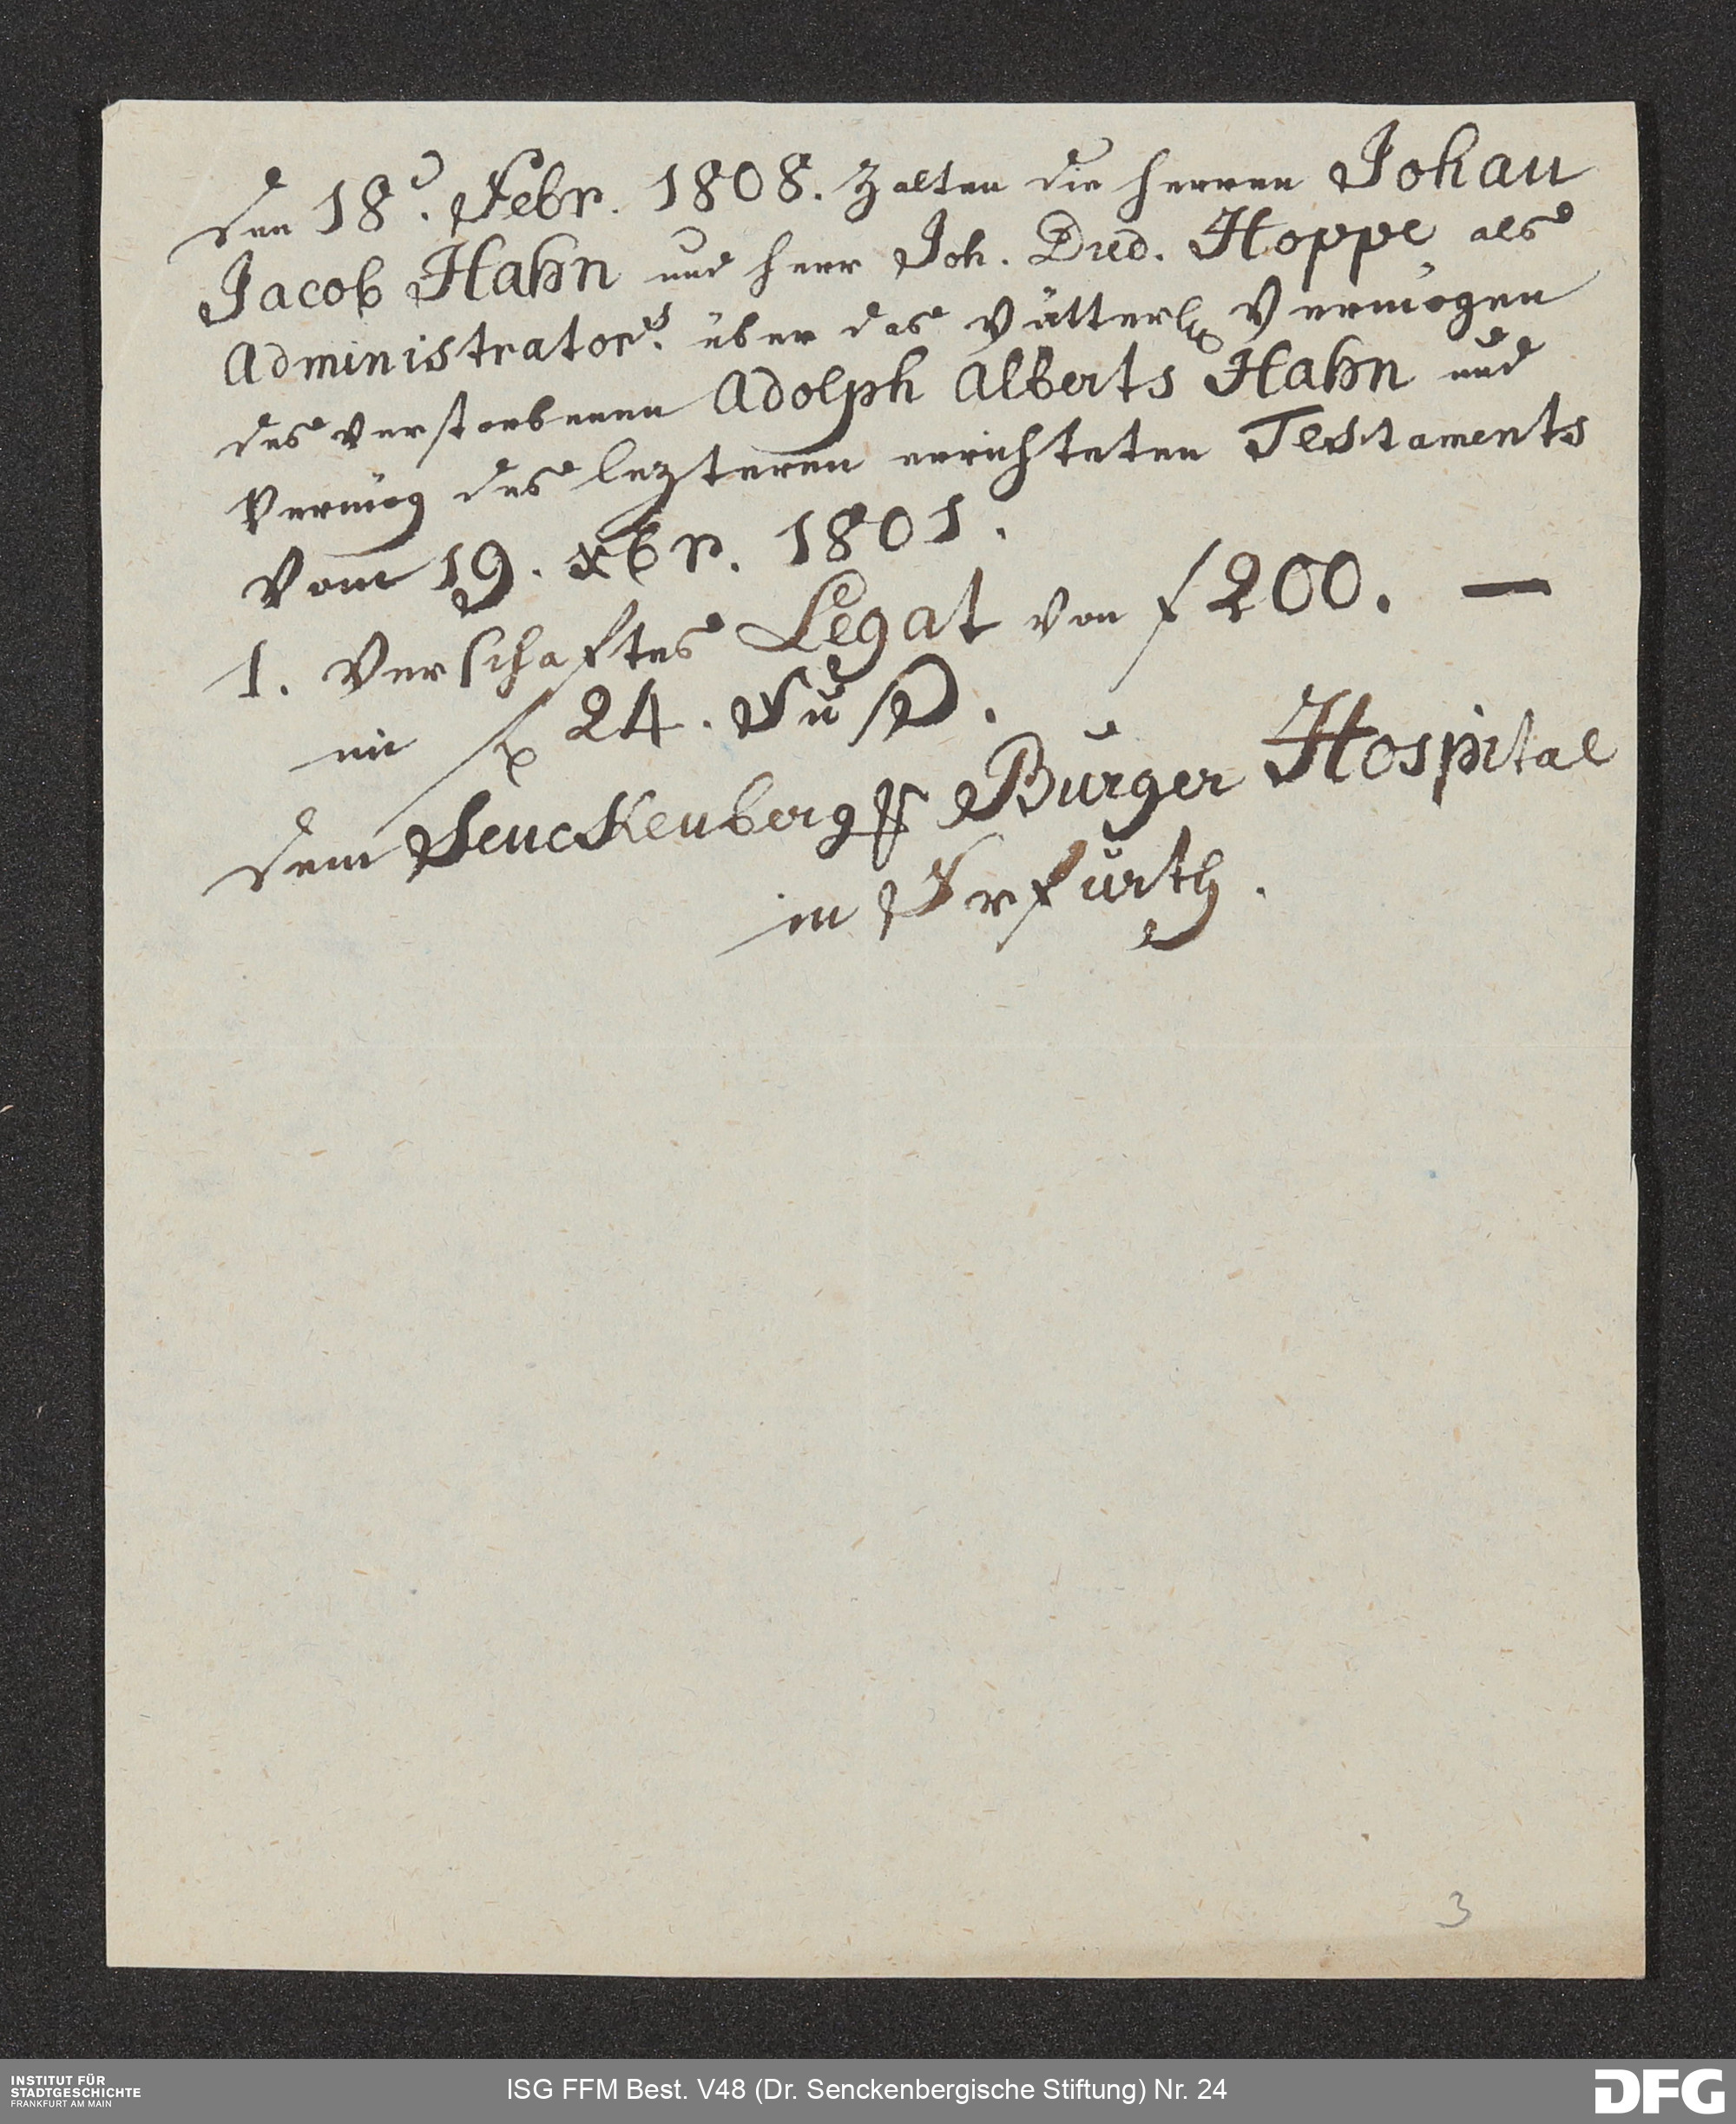 den 18.d Febr. 1808. zalten die Herren Johan
Jacob Hahn und Herr Joh. Dud. Hoppe als
Administrator.s über das Vätterl. Vermögen
des verstorbenen Adolph Alberts Hahn und
Vermög des lezteren errichteten Testaments
Vom 19. xbr. 1801.
1. Verschaftes Legat von f 200. —
im f 24. Fuß.
dem Senckenberg. Bürger Hospital
in Frfurth.
3
INSTITUT FÜR
STADTGESCHICHTE
FRANKFURT AM MAIN
ISG FFM Best. V48 (Dr. Senckenbergische Stiftung) Nr. 24
DFG